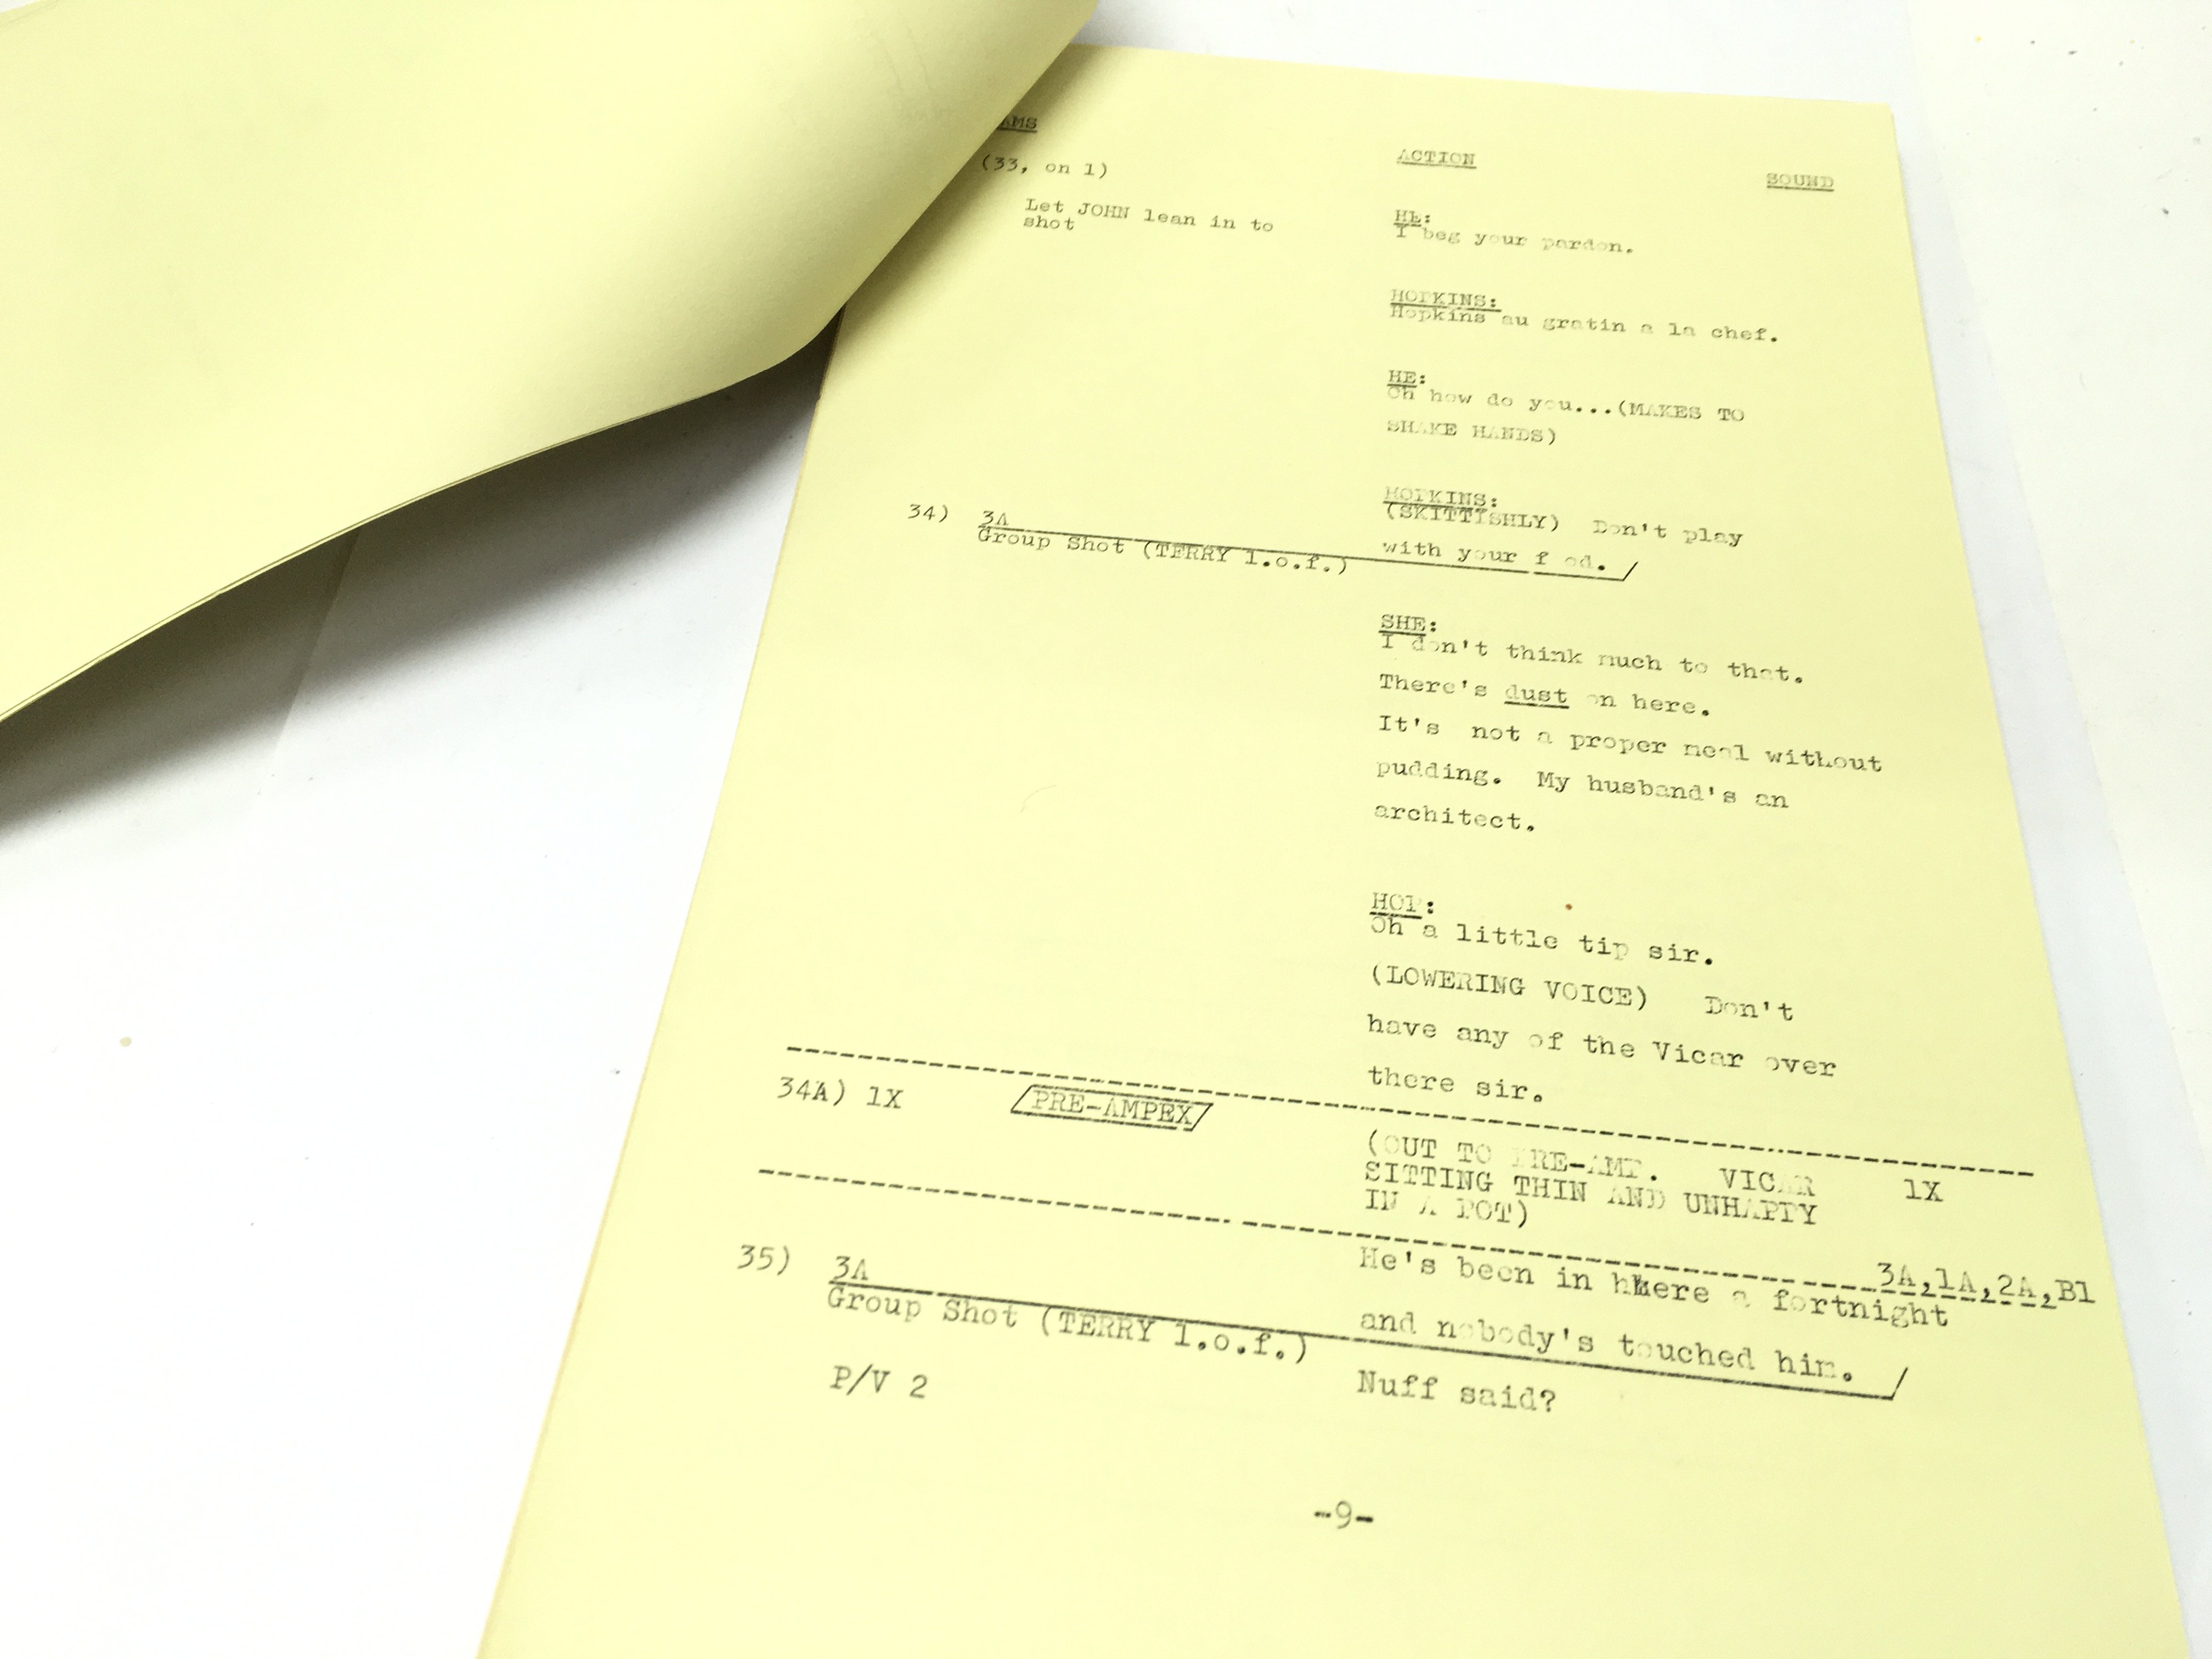 AMS
ACTION
SOUND
(33, on 1)
Let JOHN lean in to
shot
HE:
I beg your pardon.
HOPKINS:
Hopkins au gratin a la chef.
HE:
Oh how do you...(MAKES TO
SHAKE HANDS)
HOPKINS:
(SKITTISHLY) Don't play
34) 3A
Group Shot (TERRY l.o.f.)
with your f od. /
SHE:
I don't think much to that.
There's dust on here.
It's not a proper meal without
pudding. My husband's an
architect.
HOP:
Oh a little tip sir.
(LOWERING VOICE) Don't
have any of the Vicar over
there sir.
34A) 1X PRE-AMPEX
(OUT TO PRE-AMP. VICAR 1X
SITTING THIN AND UNHAPPY
IN A POT)
3A,1A,2A,B1
He's been in here a fortnight
35) 3A
Group Shot (TERRY l.o.f.)
and nobody's touched him. /
P/V 2
Nuff said?
-9-